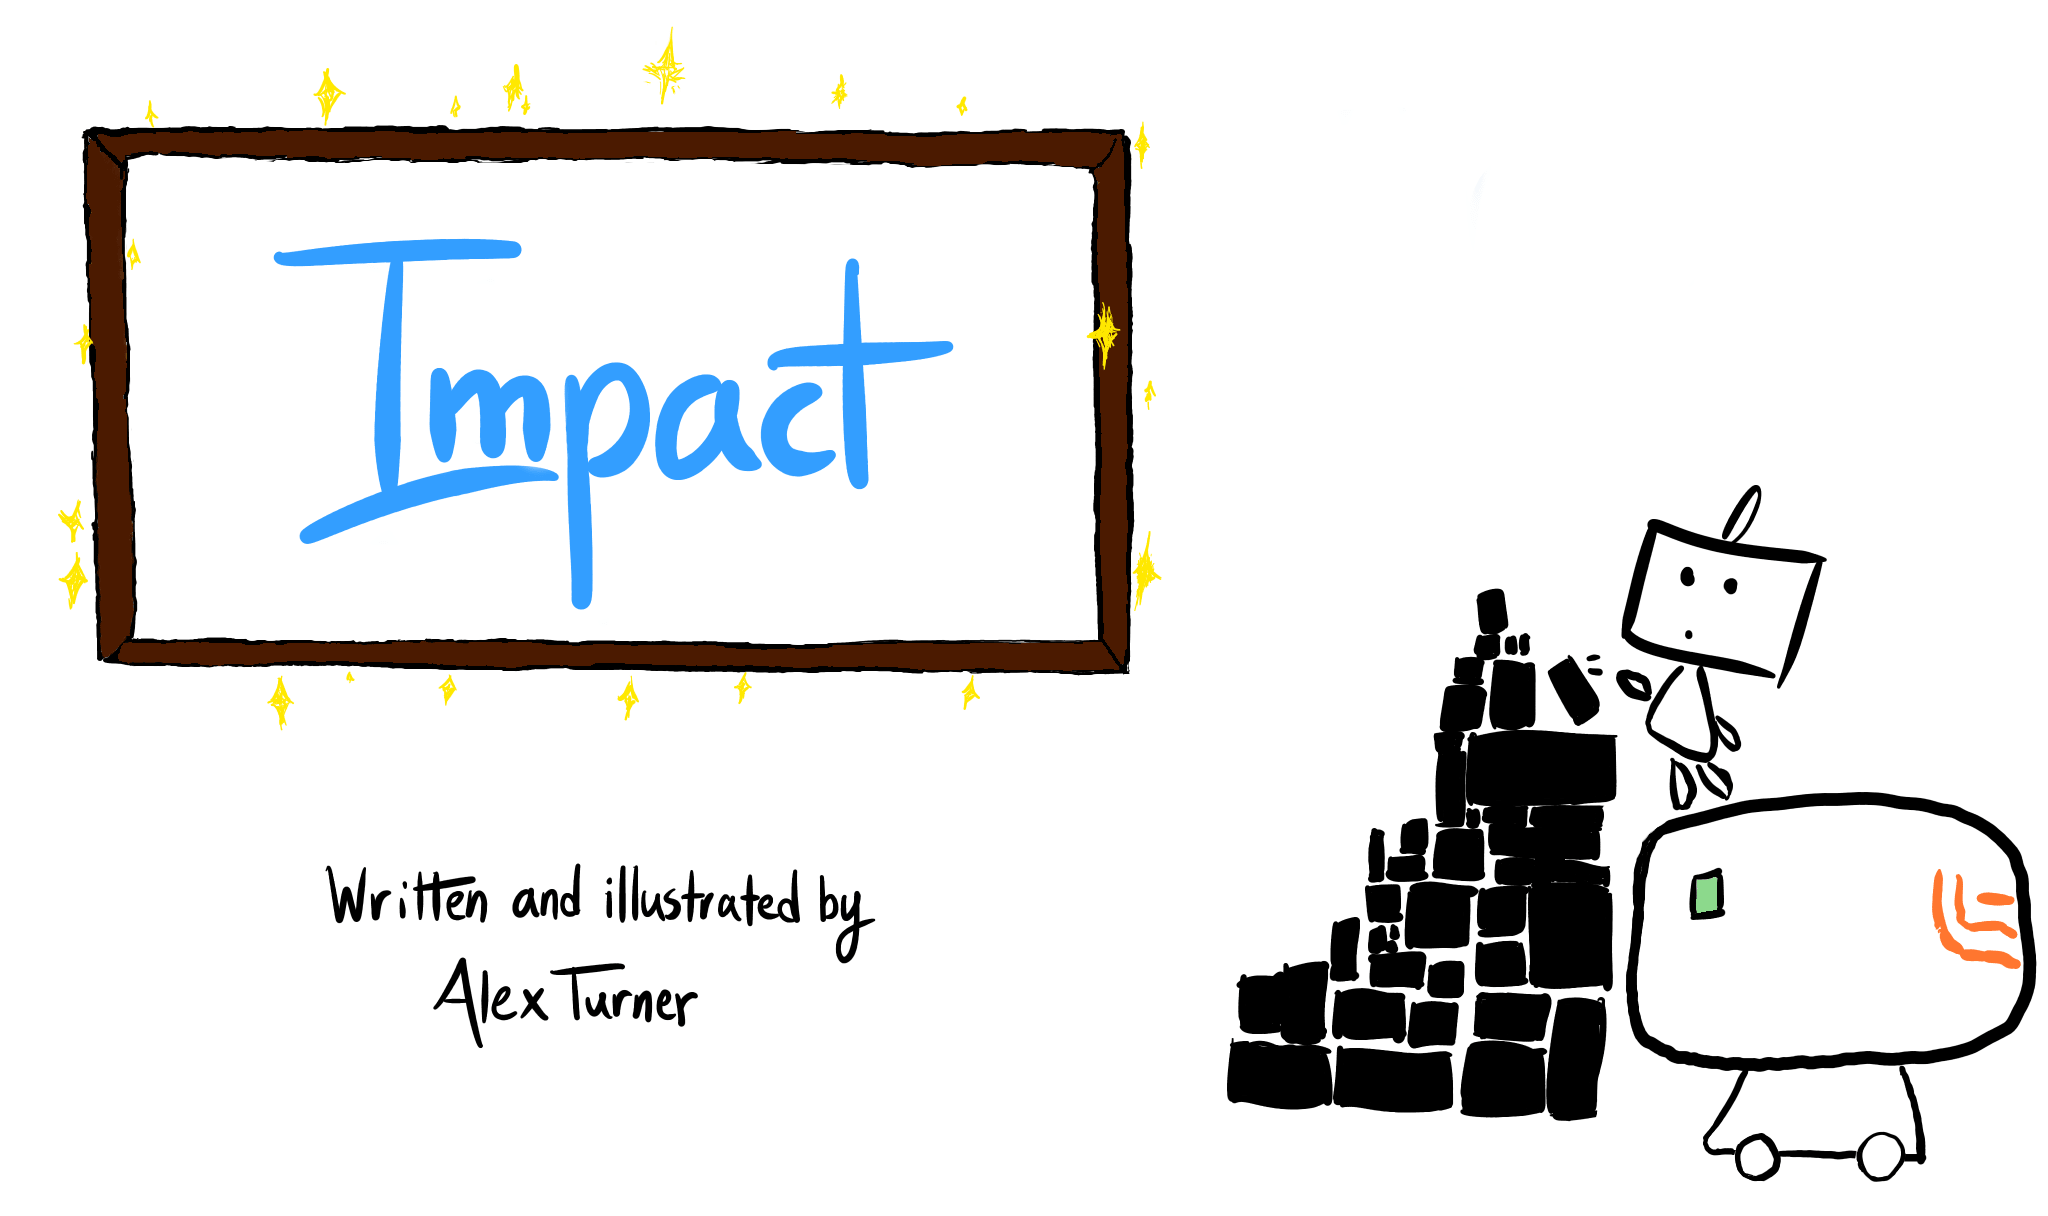 Impact
Written and illustrated by
Alex Turner